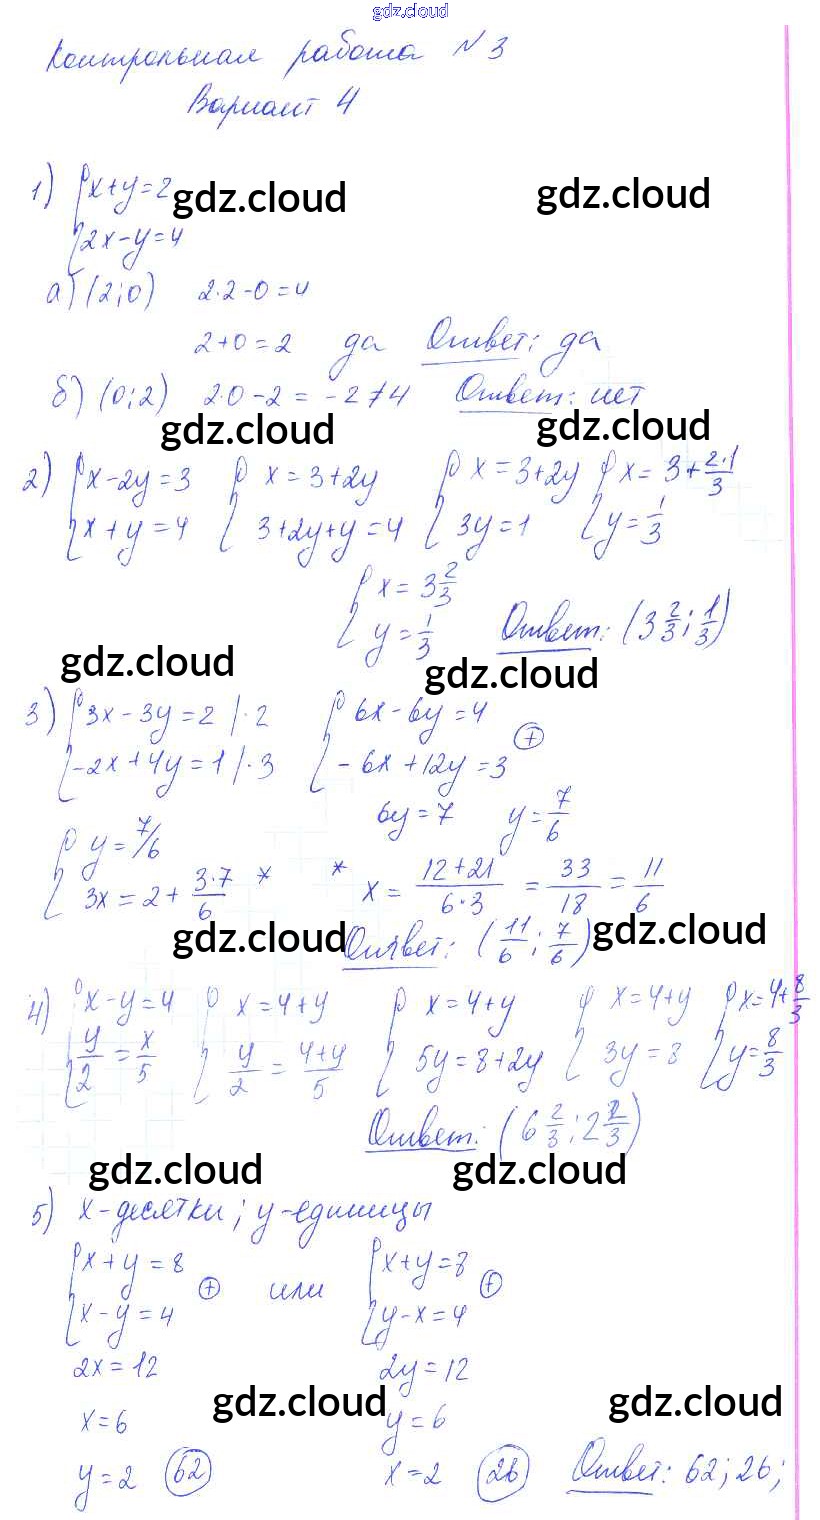 gdz.cloud
Контрольная работа №3
Вариант 4
1) {x+y=2
gdz.cloud gdz.cloud
{2x-y=4
а) (2;0) 2·2-0=4
2+0=2 да Ответ: да
б) (0;2) 2·0-2=-2≠4 Ответ: нет
gdz.cloud gdz.cloud
2) {x-2y=3 {x=3+2y {x=3+2y {x=3+2·1/3
{x+y=4 {3+2y+y=4 {3y=1 {y=1/3
{x=3 2/3
{y=1/3 Ответ: (3 2/3; 1/3)
gdz.cloud gdz.cloud
3) {3x-3y=2 |·2 {6x-6y=4
{-2x+4y=1 |·3 {-6x+12y=3 (+)
6y=7 y=7/6
{y=7/6
{3x=2+3·7/6 * * x=(12+21)/(6·3)=33/18=11/6
gdz.cloud Ответ: (11/6; 7/6) gdz.cloud
4) {x-y=4 {x=4+y {x=4+y {x=4+y {x=4+8/3
{y/2=x/5 {y/2=(4+y)/5 {5y=8+2y {3y=8 {y=8/3
Ответ: (6 2/3; 2 2/3)
gdz.cloud gdz.cloud
5) x-десятки; y-единицы
{x+y=8 {x+y=8
(+) или (+)
{x-y=4 {y-x=4
2x=12 2y=12
gdz.cloud gdz.cloud
x=6 y=6
y=2 (62) x=2 (26) Ответ: 62; 26;